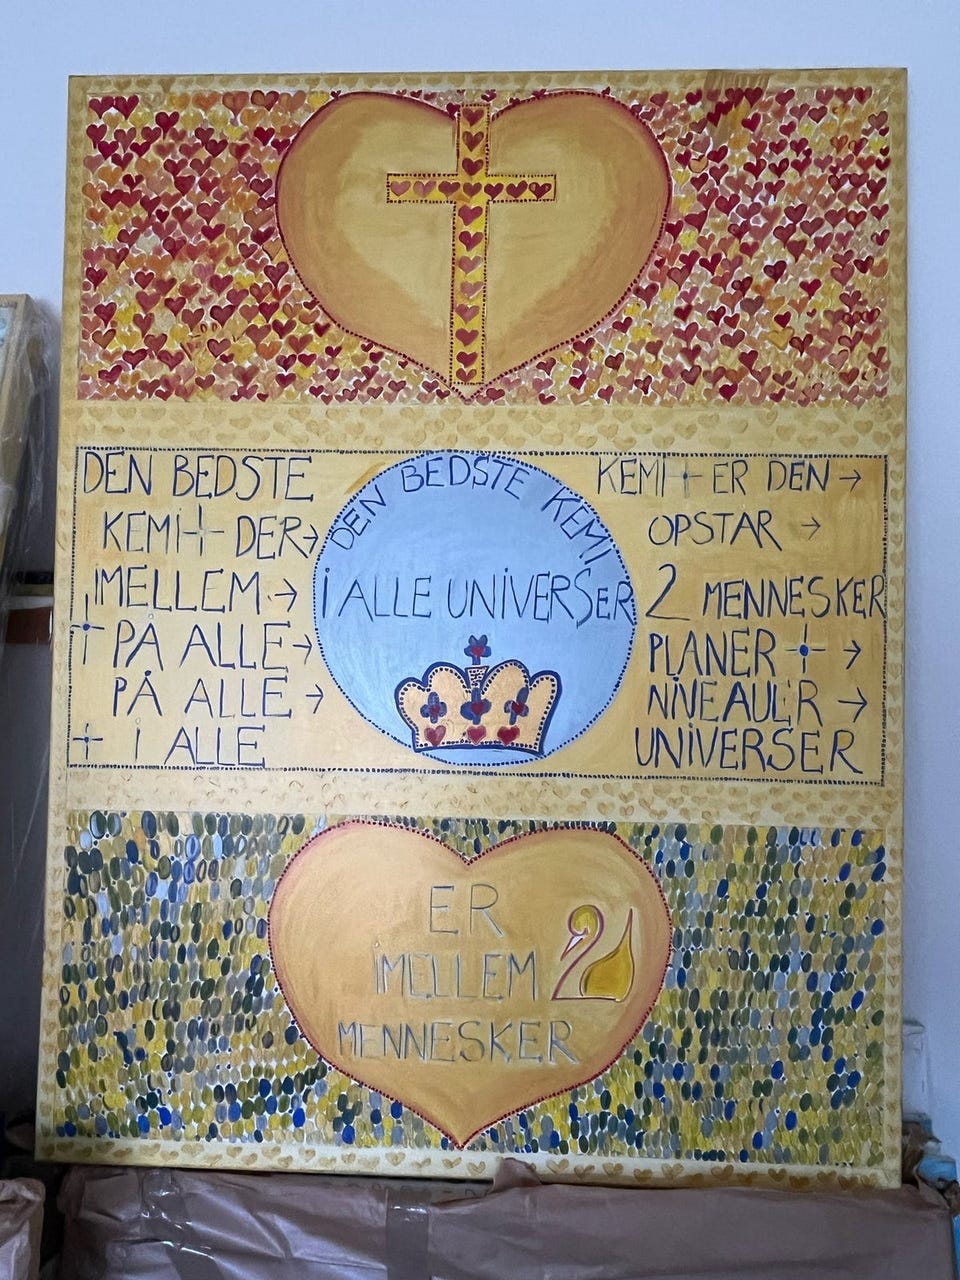 DEN BEDSTE KEMI + ER DEN →
KEMI + DER → OPSTAR →
IMELLEM → 2 MENNESKER
+ PÅ ALLE → PLANER + →
PÅ ALLE → NIVEAUER →
+ I ALLE UNIVERSER
DEN BEDSTE KEMI
I ALLE UNIVERSER
ER
IMELLEM 2
MENNESKER